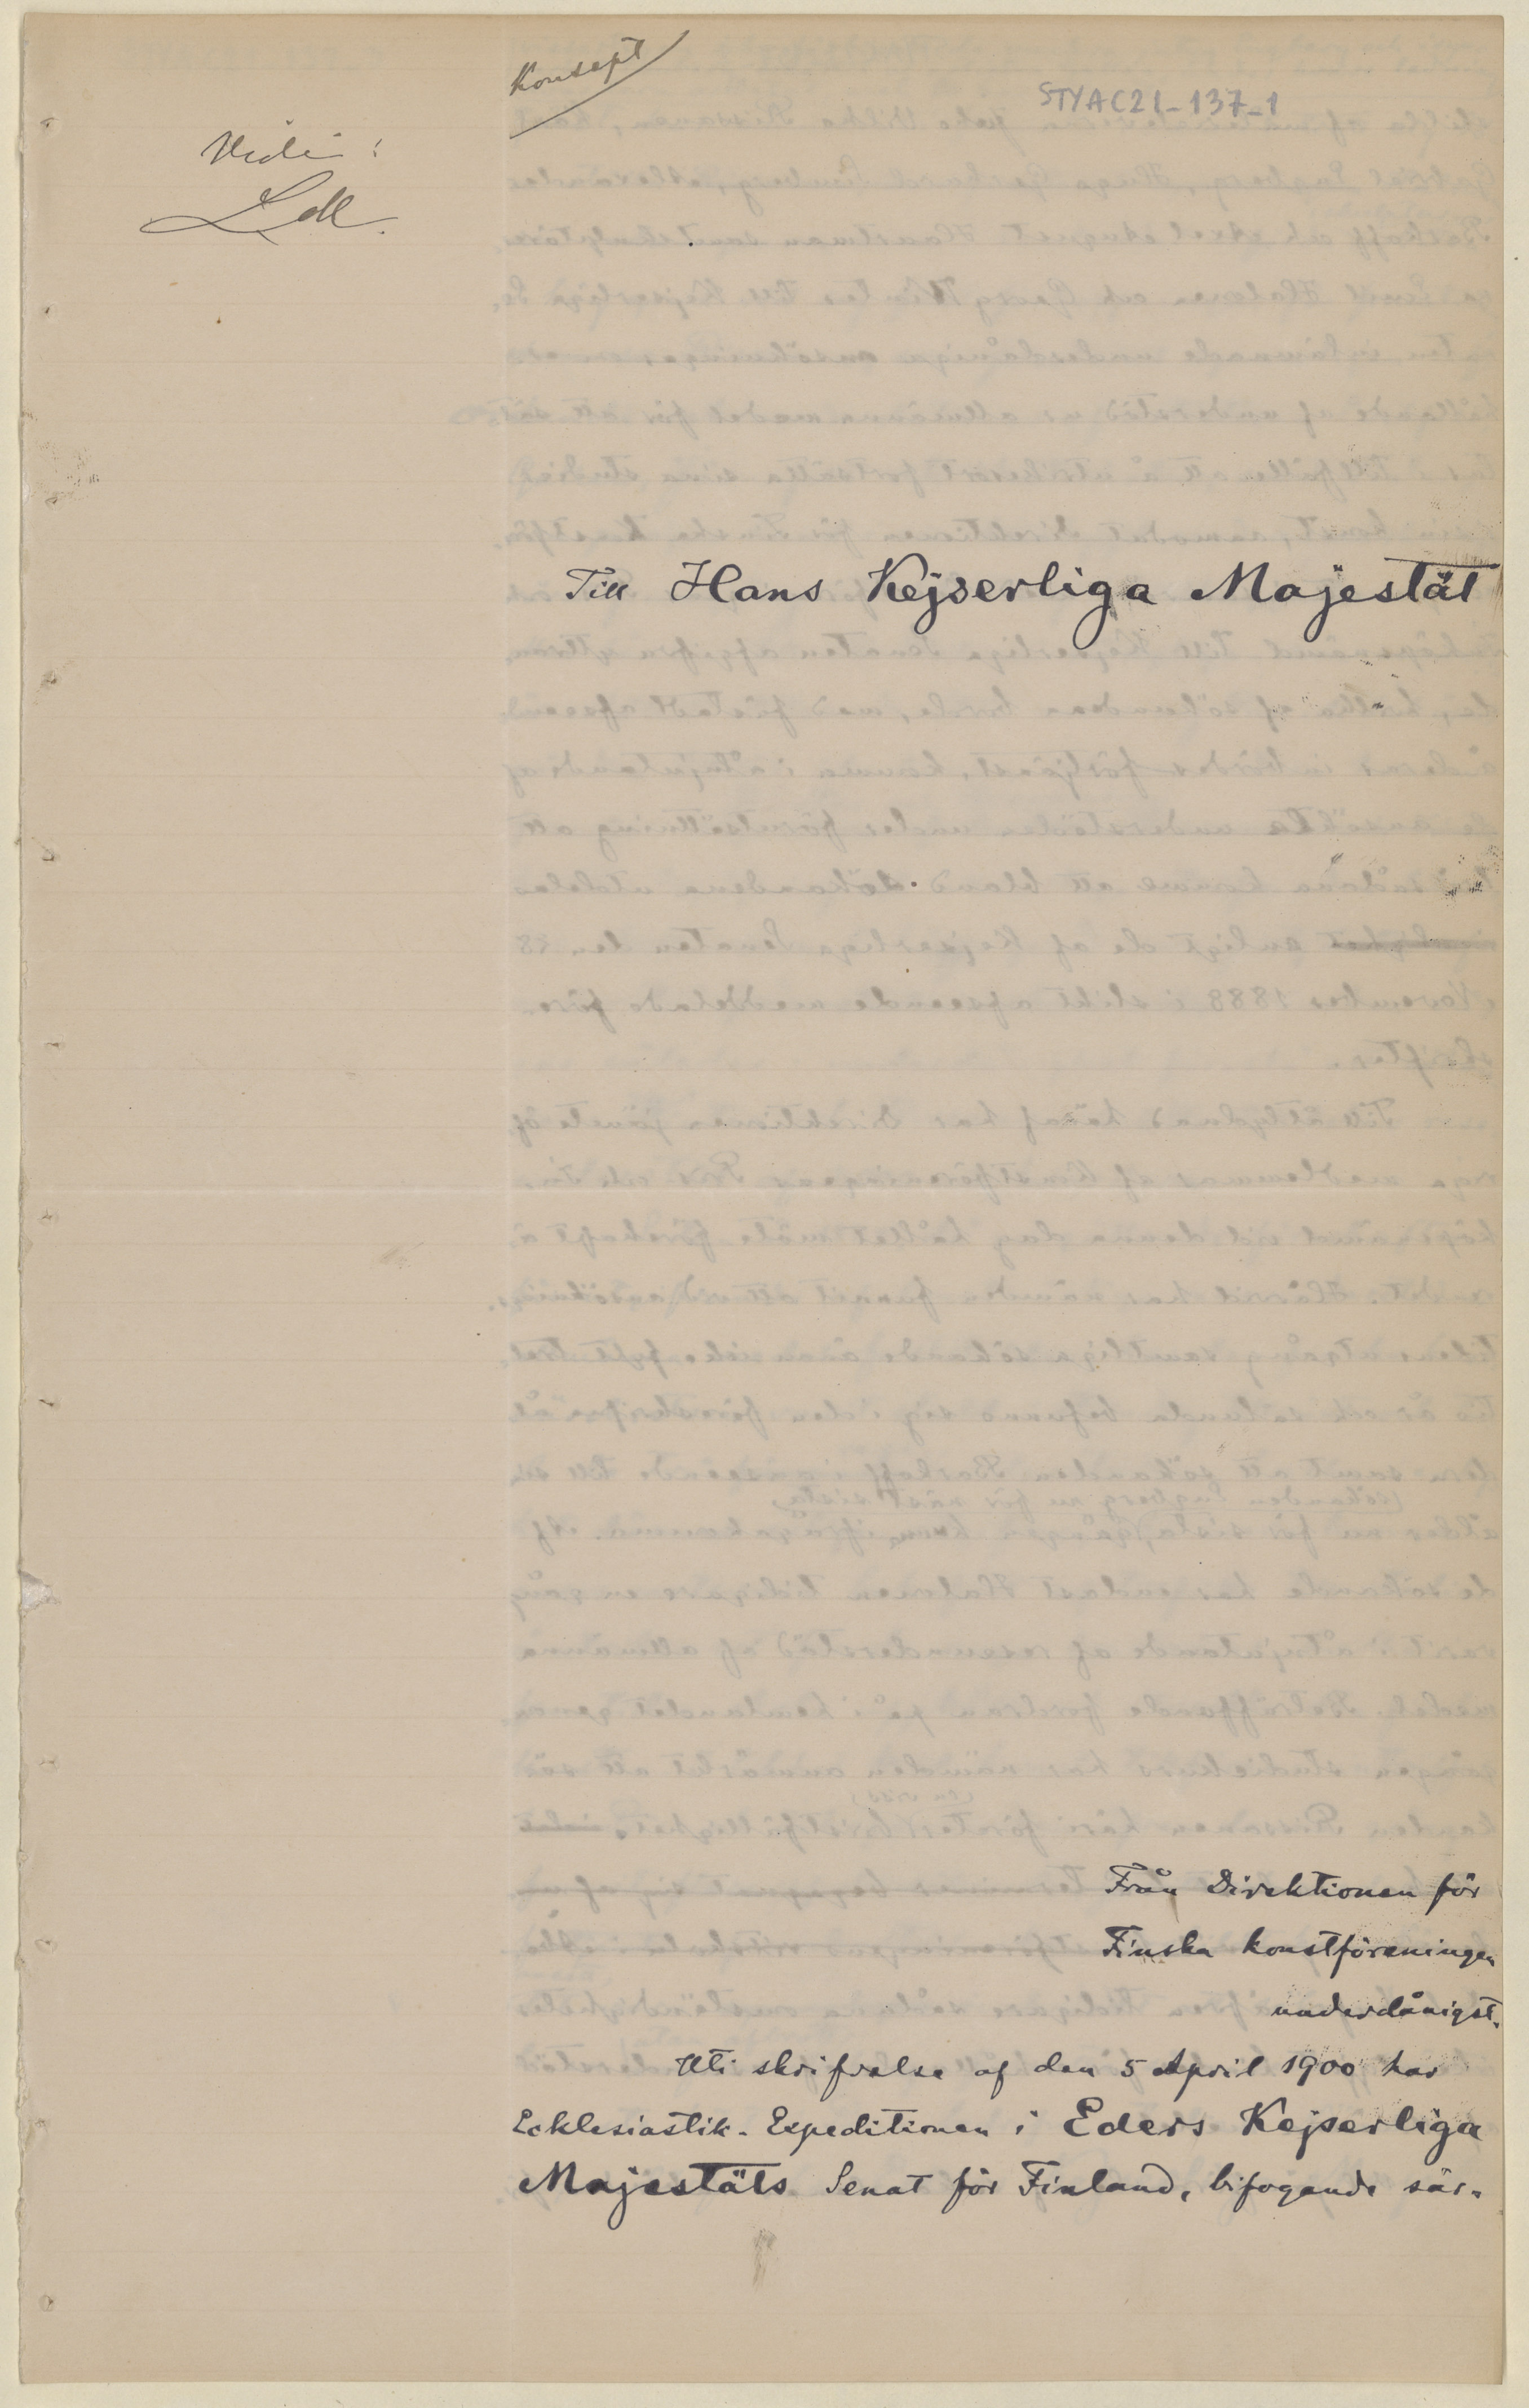 Konsept
STYAC21-137-1
Vidi:
Till Hans Kejserliga Majestät
Från Direktionen för
Finska konstföreningen
underdånigst.
Uti skrifvelse af den 5 April 1900 har
Ecklesiastik-Expeditionen i Eders Kejserliga
Majestäts Senat för Finland, bifogande sär-